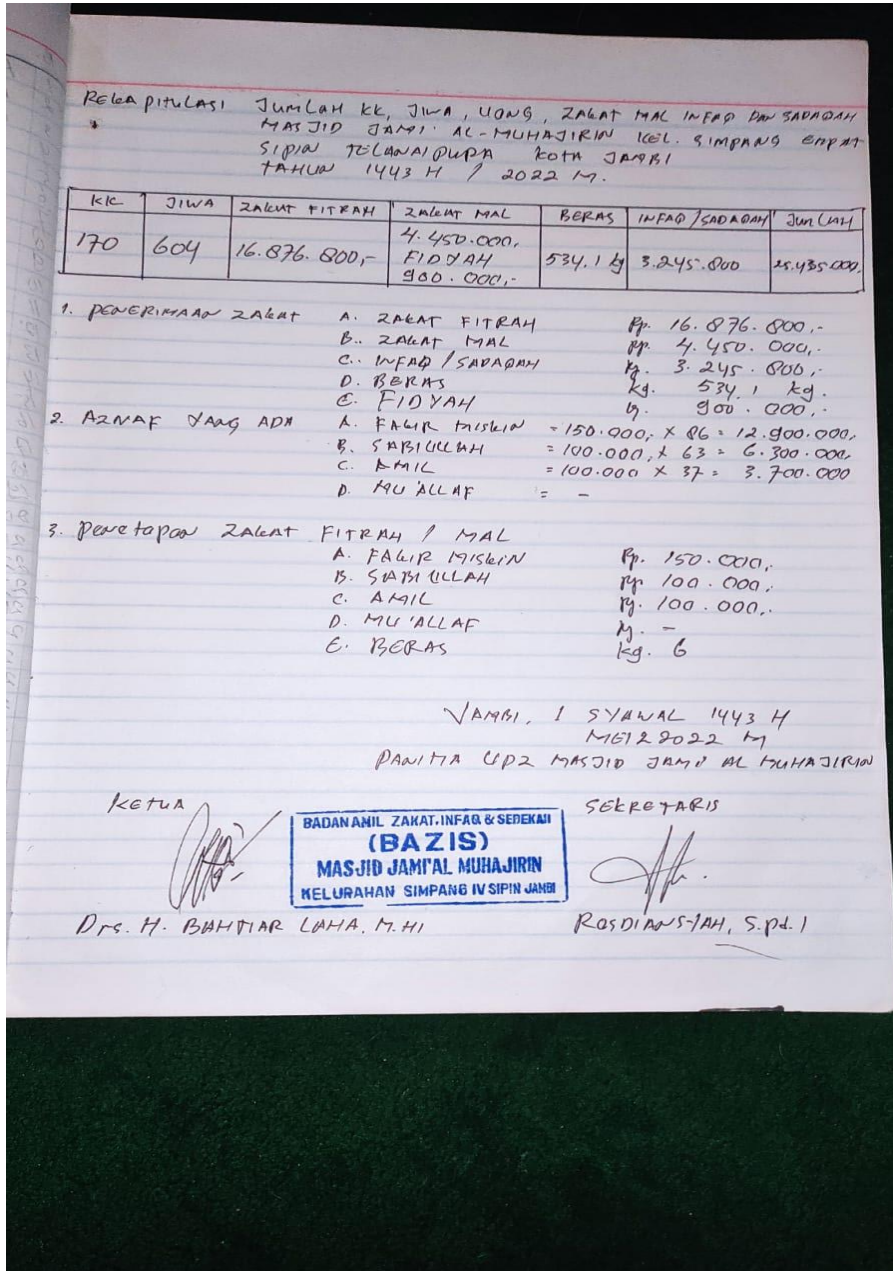 REKAPITULASI JUMLAH KK, JIWA, UONG, ZAKAT MAL INFAQ DAN SADAQAH
MASJID JAMI' AL-MUHAJIRIN KEL. SIMPANG EMPAT
SIPIN TELANAIPURA KOTA JAMBI
TAHUN 1443 H / 2022 M.
KK JIWA ZAKAT FITRAH ZAKAT MAL BERAS INFAQ/SADAQAH JUMLAH
170 604 16.876.800,- 4.450.000, FIDYAH 900.000,- 534.1 kg 3.245.800 25.435.000,
1. PENERIMAAN ZAKAT A. ZAKAT FITRAH Rp. 16.876.800,-
B. ZAKAT MAL Rp. 4.450.000,-
C. INFAQ / SADAQAH Rp. 3.245.800,-
D. BERAS kg. 534,1 kg.
E. FIDYAH Rp. 900.000,-
2. AZNAF YANG ADA A. FAKIR MISKIN = 150.000, x 86 = 12.900.000,
B. SABILILLAH = 100.000, x 63 = 6.300.000,
C. AMIL = 100.000 x 37 = 3.700.000
D. MU'ALLAF = -
3. Penetapan ZAKAT FITRAH / MAL
A. FAKIR MISKIN Rp. 150.000,-
B. SABILILLAH Rp. 100.000,-
C. AMIL Rp. 100.000,-
D. MU'ALLAF Rp. -
E. BERAS kg. 6
JAMBI, 1 SYAWAL 1443 H
MEI 2 2022 M
PANITIA UPZ MASJID JAMI' AL MUHAJIRIN
KETUA SEKRETARIS
BADAN AMIL ZAKAT, INFAQ & SEDEKAH
(BAZIS)
MASJID JAMI'AL MUHAJIRIN
KELURAHAN SIMPANG IV SIPIN JAMBI
Drs. H. BAHTIAR LAHA, M.HI ROSDIANSYAH, S.Pd.I